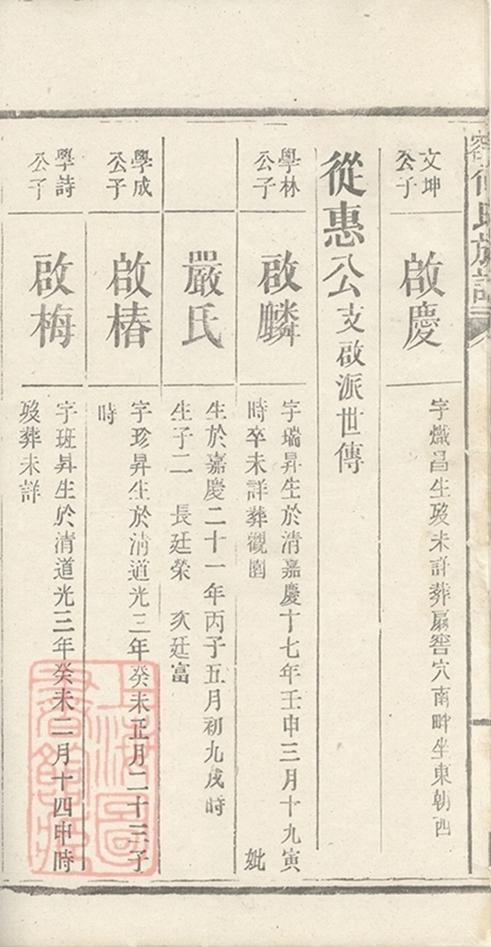 氏族譜
文坤
公子
啟慶
字熾昌生歿未詳葬扇窖穴南畔坐東朝西
從惠公支啟派世傳
學林
公子
啟麟
字瑞昇生於清嘉慶十七年壬申三月十九寅
時卒未詳葬觀園 妣
嚴氏
生於嘉慶二十一年丙子五月初九戌時
生子二 長廷榮 次廷富
學成
公子
啟椿
字珍昇生於清道光三年癸未正月二十三子
時
學詩
公子
啟梅
字班昇生於清道光三年癸未二月十四申時
歿葬未詳
上海圖
書館藏